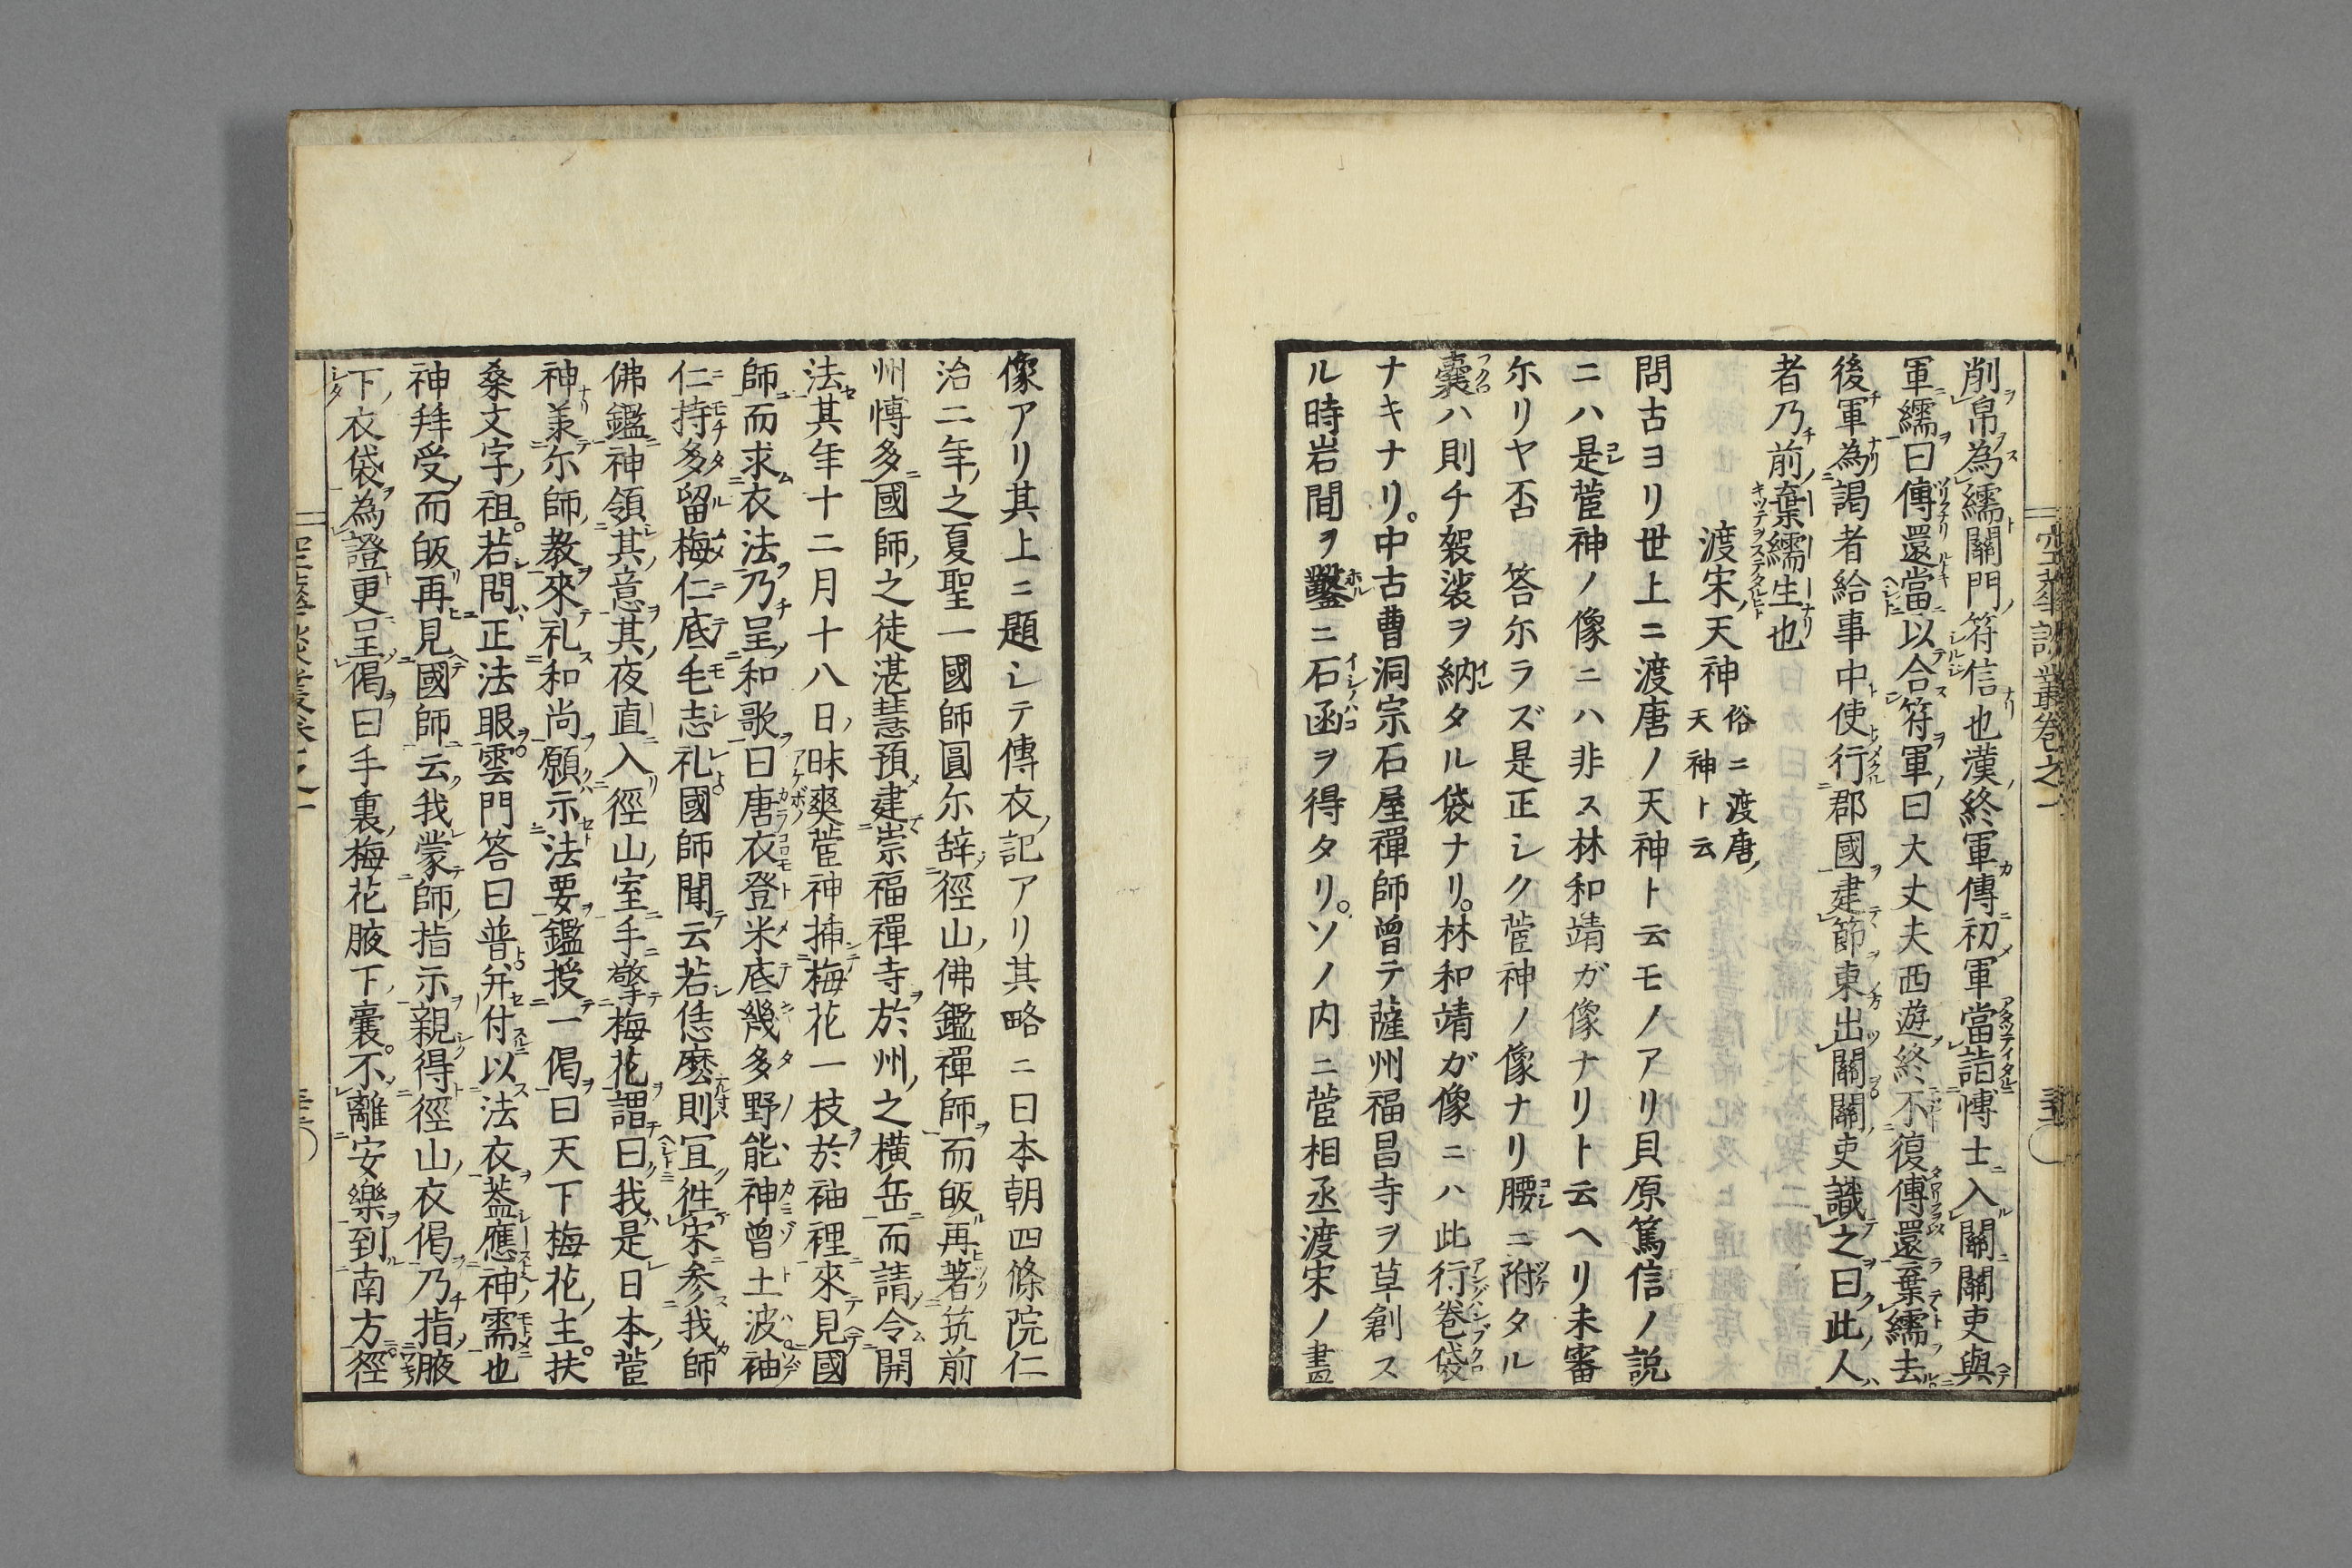 削帛為繻關門符信也漢終軍傳初軍當詣博士入關關吏與
軍繻曰傳還當以合符軍曰大丈夫西遊終不復傳還棄繻去
後軍為謁者給事中使行郡國建節東出關關吏識之曰此人
者乃前棄繻生也
渡宋天神 俗ニ渡唐天神ト云
問古ヨリ世上ニ渡唐ノ天神ト云モノアリ貝原篤信ノ説
ニハ是菅神ノ像ニハ非ス林和靖ガ像ナリト云ヘリ未審
尓リヤ否 答尓ラズ是正シク菅神ノ像ナリ腰ニ附タル
囊ハ則チ袈裟ヲ納タル袋ナリ。林和靖ガ像ニハ此行巻袋
ナキナリ。中古曹洞宗石屋禪師曾テ薩州福昌寺ヲ草創ス
ル時岩間ヲ鑿ニ石函ヲ得タリ。ソノ内ニ菅相丞渡宋ノ畫
像アリ其上ニ題シテ傳衣記アリ其略ニ曰本朝四條院仁
治二年之夏聖一國師圓尓辞徑山佛鑑禪師而皈再著筑前
州博多國師之徒湛慧預建崇福禪寺於州之橫岳而請令開
法其年十二月十八日昧爽菅神挿梅花一枝於袖裡來見國
師而求衣法乃呈和歌曰唐衣登米底幾多野能神曾土波袖
仁持多留梅仁底毛志礼國師聞云若恁麼則冝徃宋参我師
佛鑑神領其意其夜直入徑山室手擎梅花謂曰我是日本菅
神羕尓師教來礼和尚願示法要鑑授一偈曰天下梅花主扶
桑文字祖。若問正法眼。雲門答曰普。并付以法衣葢應神需也
神拜受而皈再見國師云我蒙師指示親得徑山衣偈乃指腋
下衣袋為證更呈偈曰手裏梅花腋下囊。不離安樂到南方。徑